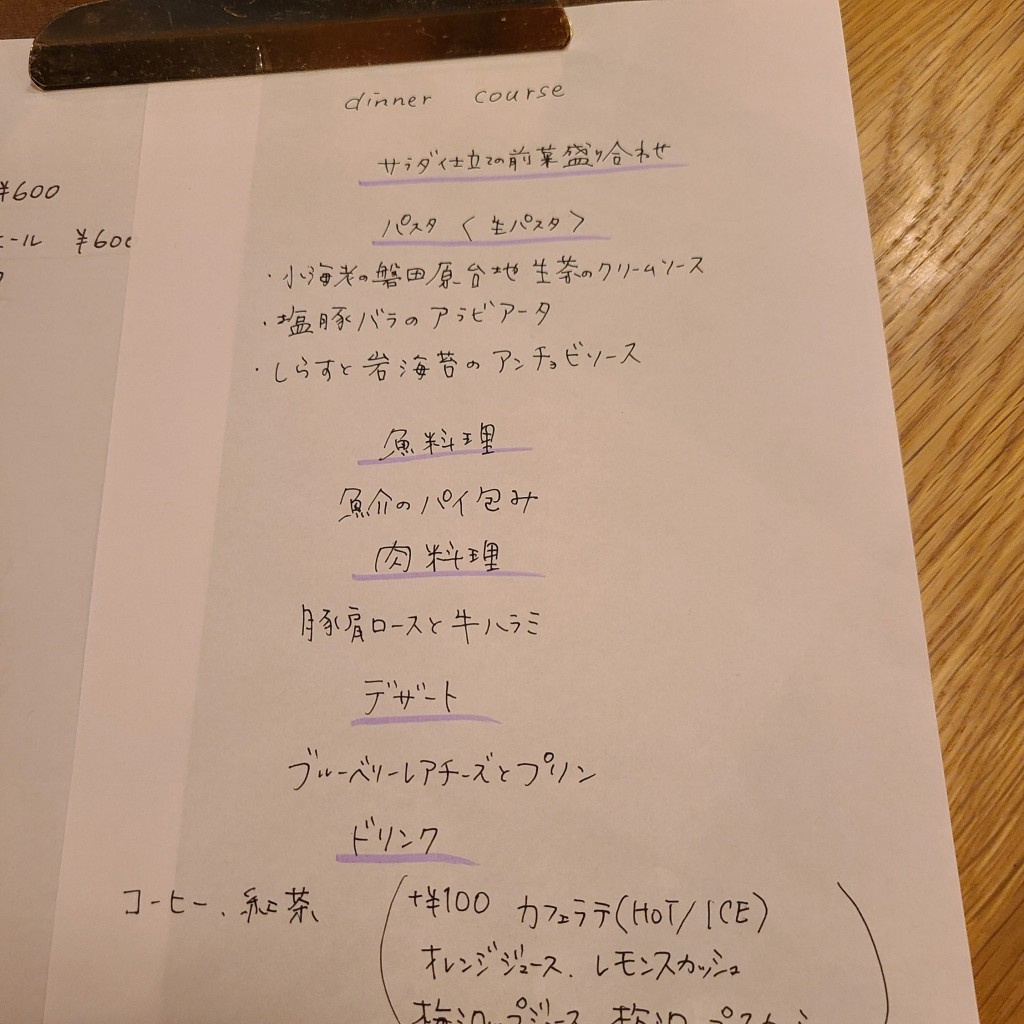 dinner course
サラダ仕立ての前菜盛り合わせ
パスタ〈生パスタ〉
・小海老の磐田原台地生茶のクリームソース
・塩豚バラのアラビアータ
・しらすと岩海苔のアンチョビソース
魚料理
魚介のパイ包み
肉料理
豚肩ロースと牛ハラミ
デザート
ブルーベリーレアチーズとプリン
ドリンク
コーヒー、紅茶
+¥100 カフェラテ(HOT/ICE)
オレンジジュース、レモンスカッシュ
¥600
ール ¥600